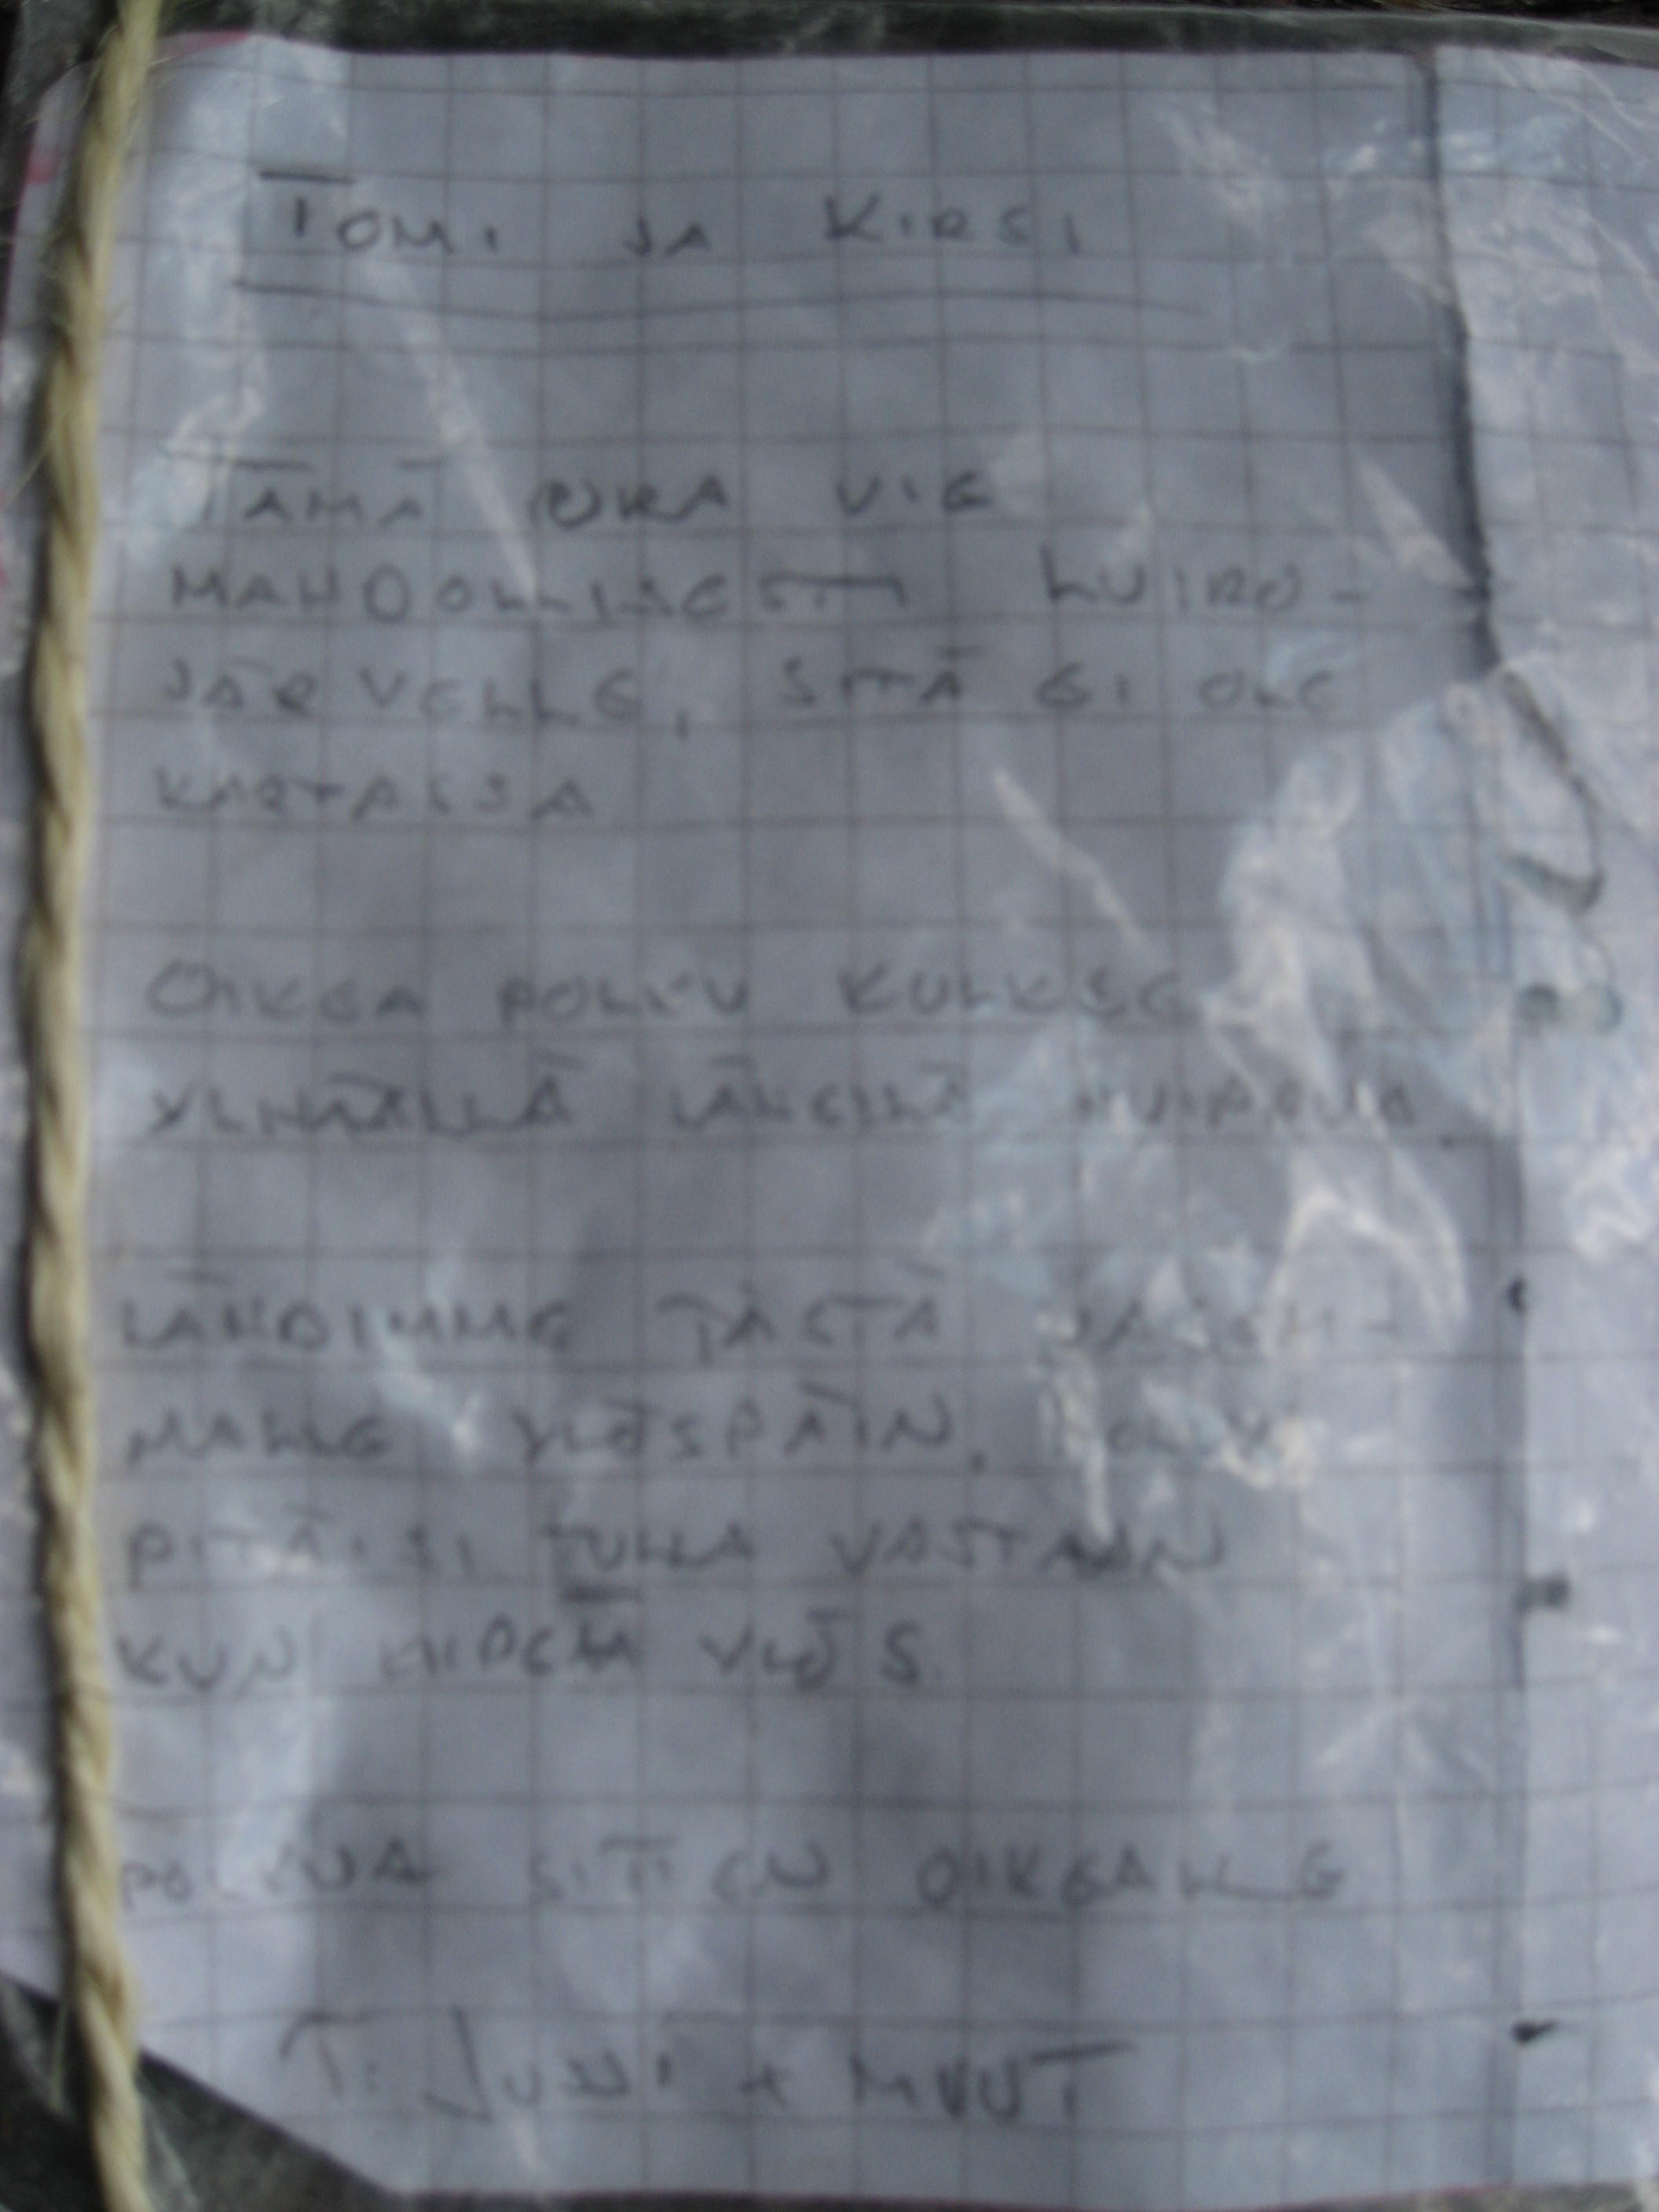 TOMI JA KIRSI
TÄMÄ URA VIE
MAHDOLLISESTI LUIRO-
JÄRVELLE, SITÄ EI OLE
KARTASSA
OIKEA POLKU KULKEE
YLHÄÄLLÄ LÄHELLÄ
LÄHDIMME TÄSTÄ
MALLE YLÖSPÄIN. POLKU
PITÄISI TULLA VASTAAN
KUN YLÖS
POLKUA SITTEN OIKEALLE
T: JUSSI + MUUT